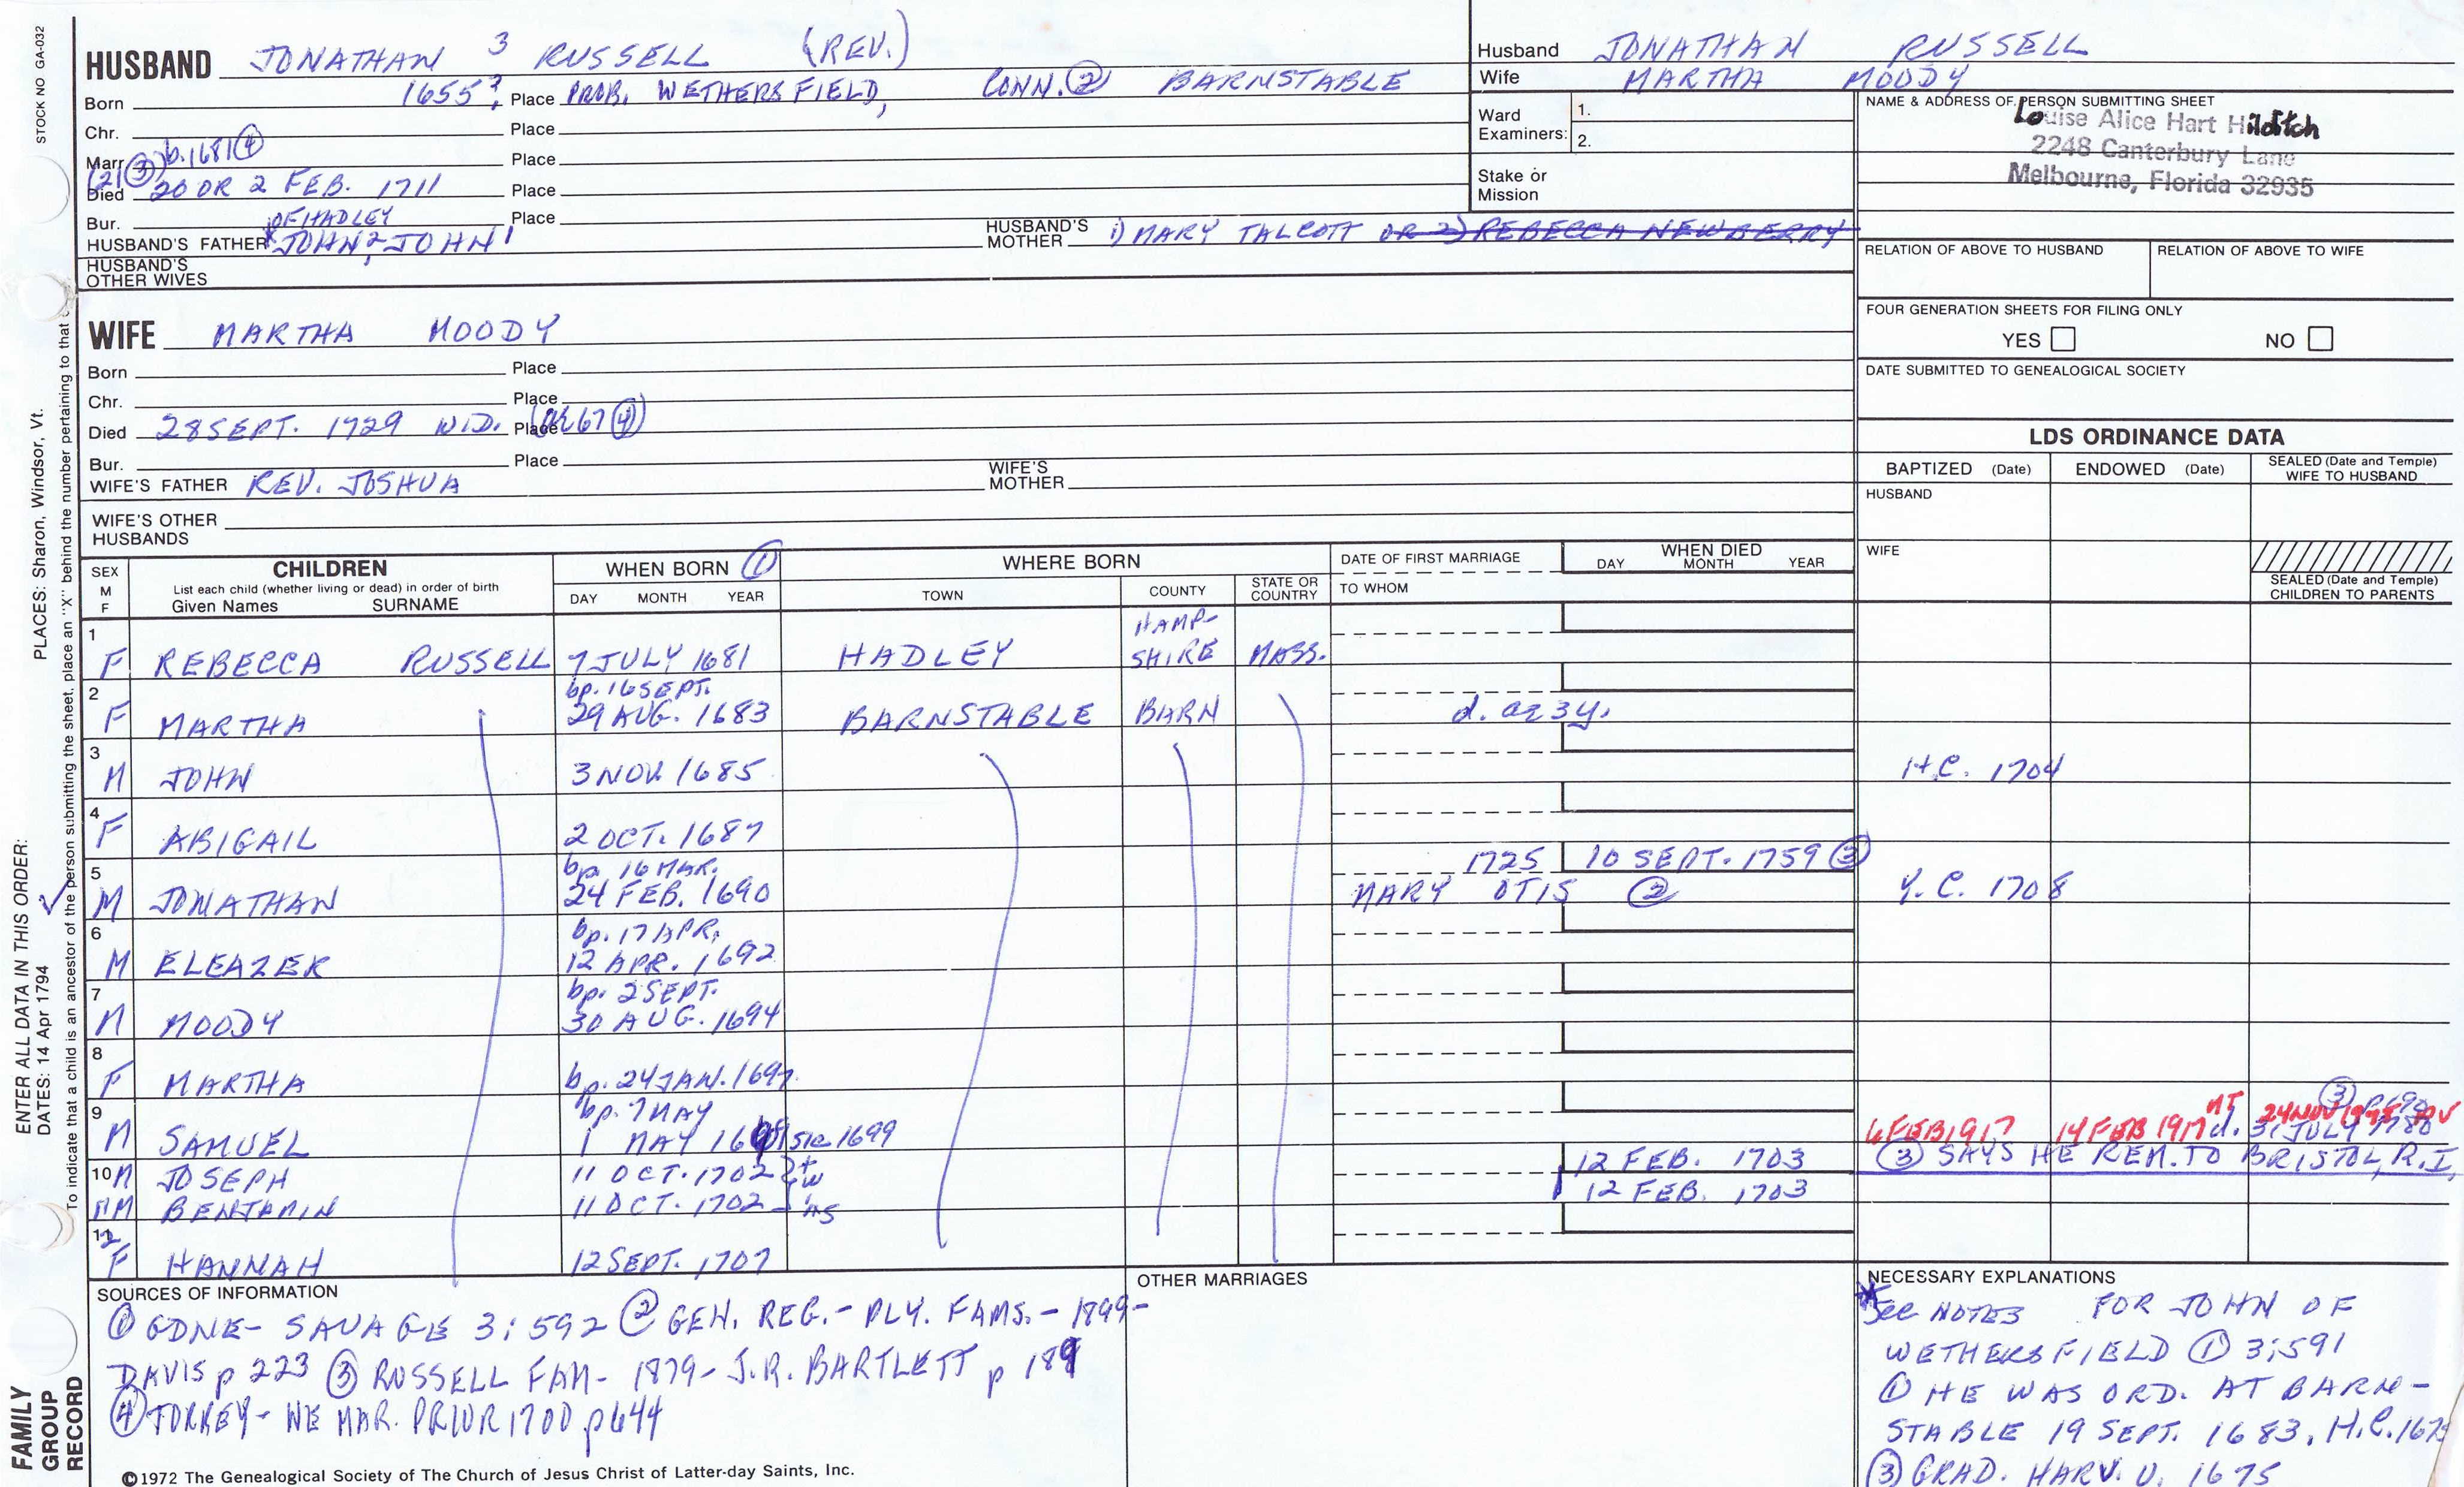 STOCK NO GA-032
PLACES: Sharon, Windsor, Vt.
ENTER ALL DATA IN THIS ORDER:
DATES: 14 Apr 1794
To indicate that a child is an ancestor of the person submitting the sheet, place an "X" behind the number pertaining to that
FAMILY
GROUP
RECORD
HUSBAND JONATHAN 3 RUSSELL (REV.)
Born 1655? Place PROB. WETHERSFIELD, CONN. ② BARNSTABLE
Chr. Place
Marr. ③ b. 1681 ④ Place
Died (2)③ 20 OR 2 FEB. 1711 Place
Bur. Place
OF HADLEY
HUSBAND'S FATHER * JOHN 2, JOHN 1 HUSBAND'S MOTHER 1) MARY TALCOTT OR 2) REBECCA NEWBERRY
HUSBAND'S
OTHER WIVES
WIFE MARTHA MOODY
Born Place
Chr. Place
Died 28 SEPT. 1729 WID. Place 67 ④
Bur. Place
WIFE'S FATHER REV. JOSHUA WIFE'S MOTHER
WIFE'S OTHER
HUSBANDS
Husband JONATHAN RUSSELL
Wife MARTHA MOODY
Ward
Examiners: 1.
2.
Stake or
Mission
NAME & ADDRESS OF PERSON SUBMITTING SHEET
Louise Alice Hart Hilditch
2248 Canterbury Lane
Melbourne, Florida 32935
RELATION OF ABOVE TO HUSBAND RELATION OF ABOVE TO WIFE
FOUR GENERATION SHEETS FOR FILING ONLY
YES NO
DATE SUBMITTED TO GENEALOGICAL SOCIETY
LDS ORDINANCE DATA
BAPTIZED (Date) ENDOWED (Date) SEALED (Date and Temple) WIFE TO HUSBAND
HUSBAND
WIFE
SEALED (Date and Temple)
CHILDREN TO PARENTS
SEX
M
F
CHILDREN
List each child (whether living or dead) in order of birth
Given Names SURNAME
WHEN BORN ①
DAY MONTH YEAR
WHERE BORN
TOWN COUNTY STATE OR COUNTRY
DATE OF FIRST MARRIAGE
TO WHOM
WHEN DIED
DAY MONTH YEAR
1 F REBECCA RUSSELL 7 JULY 1681 HADLEY HAMP-SHIRE MASS.
bp. 16 SEPT.
2 F MARTHA 29 AUG. 1683 BARNSTABLE BARN d. ae 3y.
3 M JOHN 3 NOV. 1685 H.C. 1704
4 F ABIGAIL 2 OCT. 1687
bp. 16 MAR. 1725 10 SEPT. 1759 ③
5 M JONATHAN 24 FEB. 1690 MARY OTIS ② Y.C. 1708
bp. 17 APR.
6 M ELEAZER 12 APR. 1692
bp. 2 SEPT.
7 M MOODY 30 AUG. 1694
8 F MARTHA bp. 24 JAN. 1697
bp. 7 MAY ③
9 M SAMUEL 1 MAY sic 1699 6 FEB 1917 14 FEB 1917 d. 31 JULY
10 M JOSEPH 11 OCT. 1702 } twins 12 FEB. 1703 ③ SAYS HE REM. TO BRISTOL, R.I.
11 M BENJAMIN 11 OCT. 1702 12 FEB. 1703
12 F HANNAH 12 SEPT. 1707
SOURCES OF INFORMATION
① GDNE- SAVAGE 3:592 ② GEN. REG.- PLY. FAMS.- 1899-
DAVIS p 223 ③ RUSSELL FAM- 1879- J.R. BARTLETT p 189
④ TORREY- NE MAR. PRIOR 1700 p 644
©1972 The Genealogical Society of The Church of Jesus Christ of Latter-day Saints, Inc.
OTHER MARRIAGES
NECESSARY EXPLANATIONS
* See NOTES FOR JOHN OF
WETHERSFIELD ① 3:591
① HE WAS ORD. AT BARN-
STABLE 19 SEPT. 1683, H.C. 1675
③ GRAD. HARV. U. 1675